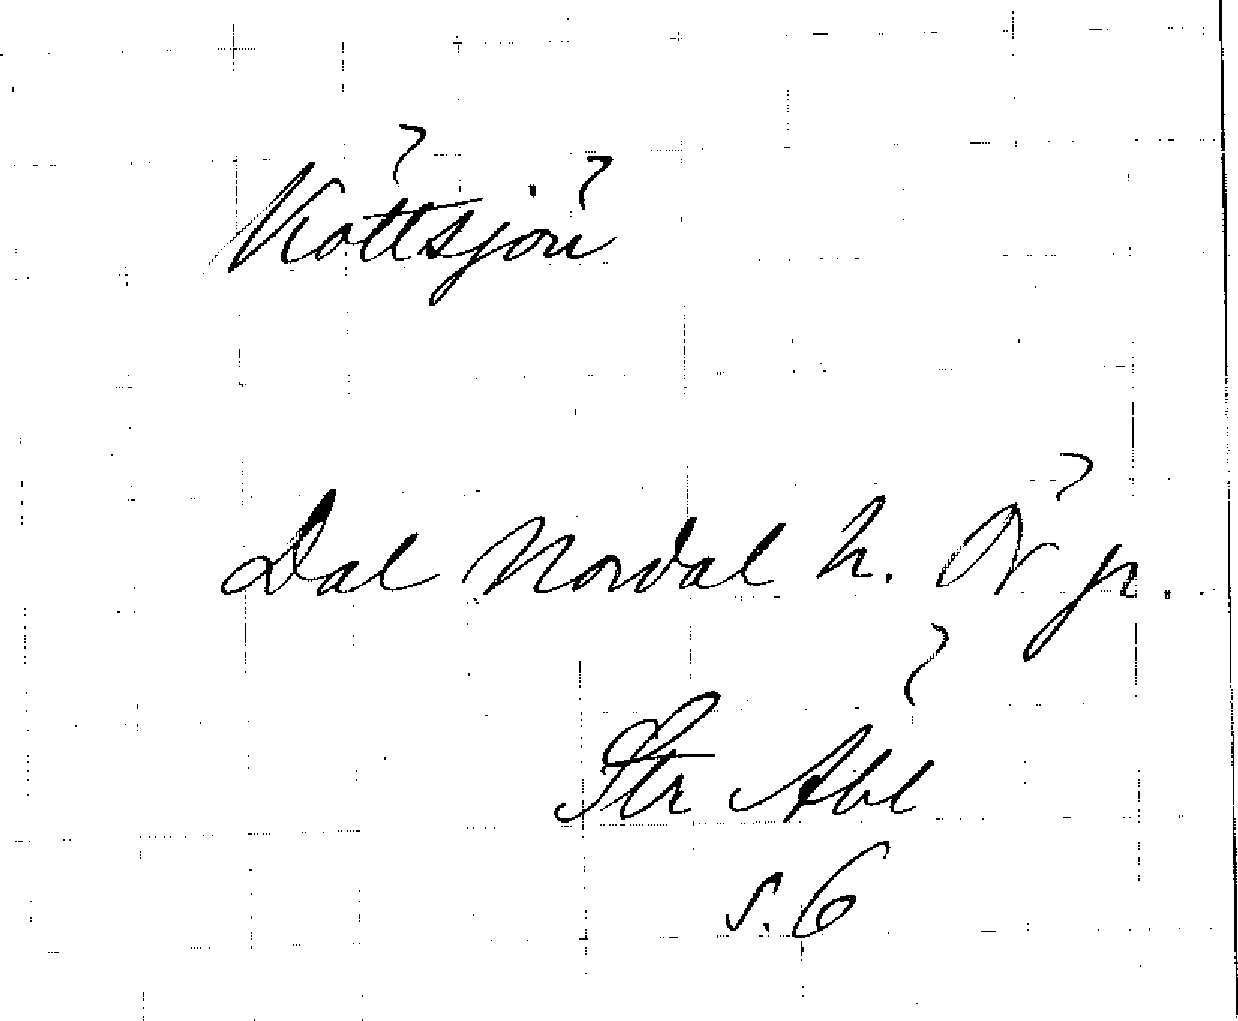 Köttsjön
Dal Nordal h. Ör jr.
Str Abl
s. 6